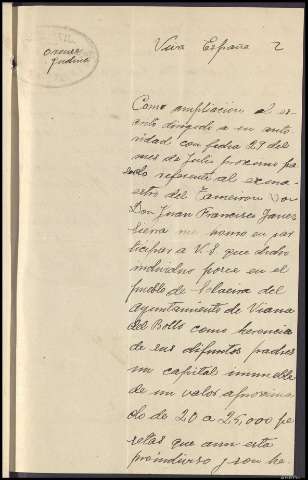 Orense
Judicial
Viva España 2
Como ampliacion al es-
crito dirigido a su auto
ridad con fecha 29 del
mes de Julio proximo pa
sado referente al exma
estro del
Don Juan Francisco Yanes
Sierra me honro en par
ticipar a V.S. que dicho
individuo posee en el
pueblo de
Ayuntamiento de Viana
del Bollo como herencia
de sus difuntos padres
un capital inmueble
de un valor aproxima
do de 20 a 25,000 pe
setas que aun esta
proindiviso y son he-